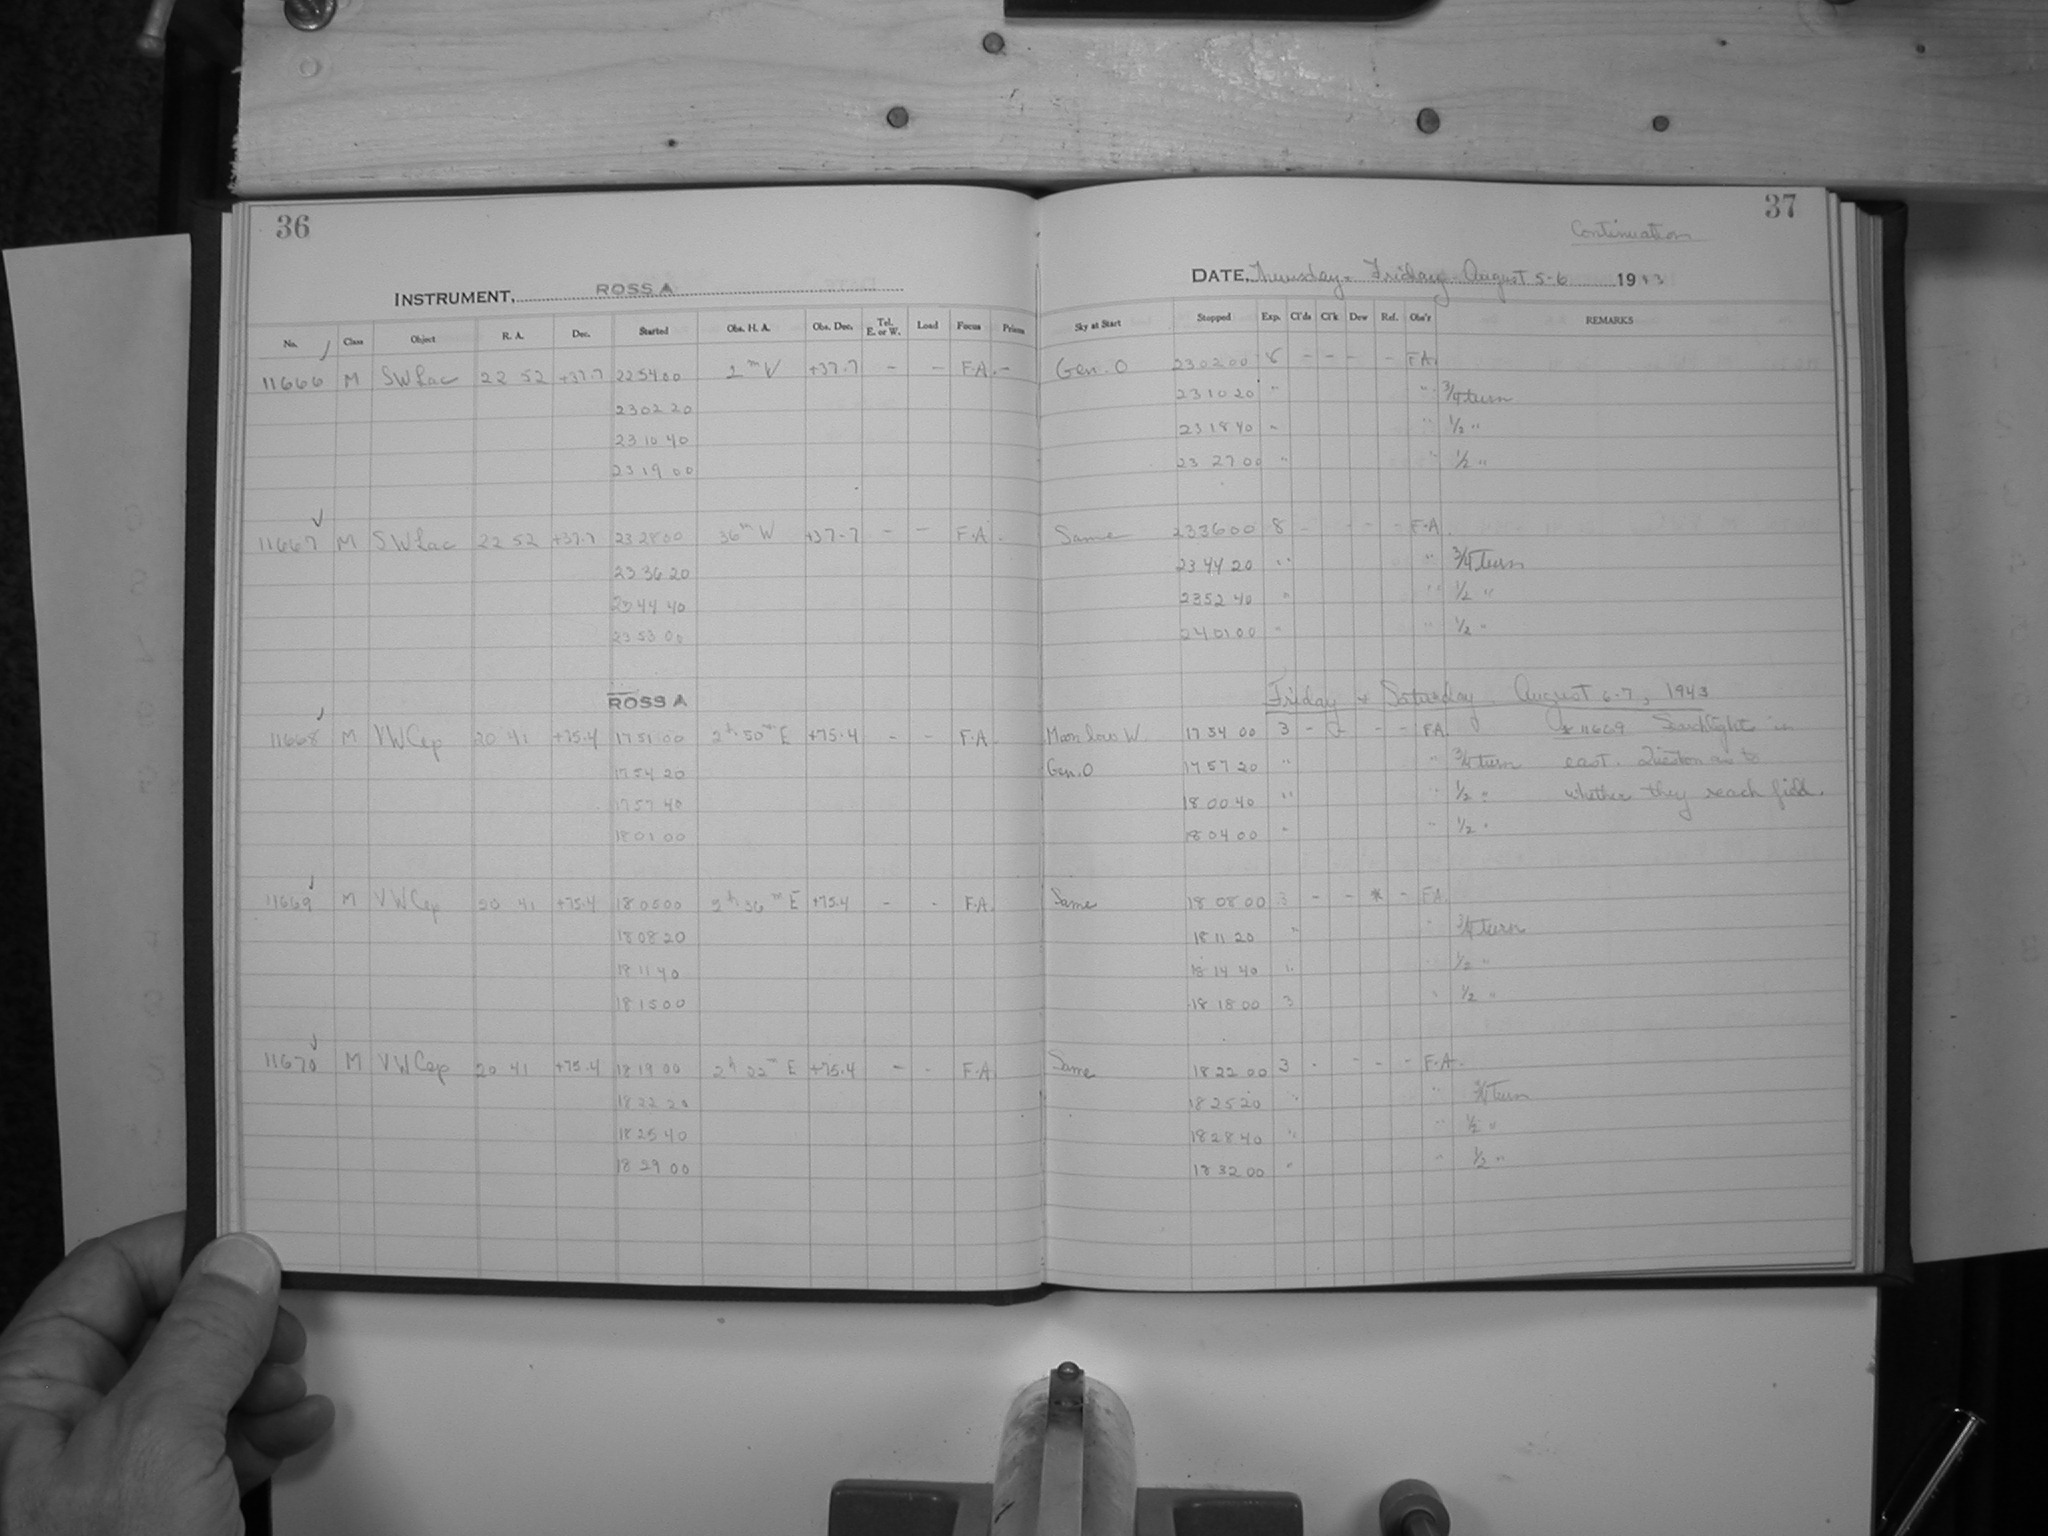 36
INSTRUMENT, ROSS A
No. Class Object R. A. Dec. Started Obs. H. A. Obs. Dec. Tel. E. or W. Load Focus Prism
11666 M SW Lac 22 52 +37.7 22 54 00 2ᵐ W +37.7 - - F.A. -
23 02 20
23 10 40
23 19 00
11667 M SW Lac 22 52 +37.7 23 28 00 36ᵐ W +37.7 - - F.A.
23 36 20
23 44 40
23 53 00
ROSS A
11668 M VW Cep 20 41 +75.4 17 51 00 2ʰ 50ᵐ E +75.4 - - F.A.
17 54 20
17 57 40
18 01 00
11669 M VW Cep 20 41 +75.4 18 05 00 2ʰ 36ᵐ E +75.4 - - F.A.
18 08 20
18 11 40
18 15 00
11670 M VW Cep 20 41 +75.4 18 19 00 2ʰ 22ᵐ E +75.4 - - F.A.
18 22 20
18 25 40
18 29 00
37
Continuation
DATE, Thursday - Friday - August 5-6 1943
Sky at Start Stopped Exp. Cl'ds Cl'k Dew Ref. Obs'r REMARKS
Gen. O 23 02 00 8 - - - - F.A.
23 10 20 " " 3/4 turn
23 18 40 " " 1/2 "
23 27 00 " " 1/2 "
Same 23 36 00 8 - - - - F.A.
23 44 20 " " 3/4 turn
23 52 40 " " 1/2 "
24 01 00 " " 1/2 "
Friday - Saturday August 6-7, 1943
Moon low W. 17 54 00 3 - - - - F.A. * 11669 Searchlights in
Gen. O 17 57 20 " " 3/4 turn east. Question as to
18 00 40 " " 1/2 " whether they reach field.
18 04 00 " " 1/2 "
Same 18 08 00 3 - - * - F.A.
18 11 20 " " 3/4 turn
18 14 40 " " 1/2 "
18 18 00 3 " 1/2 "
Same 18 22 00 3 - - - - F.A.
18 25 20 " " 3/4 turn
18 28 40 " " 1/2 "
18 32 00 " " 1/2 "